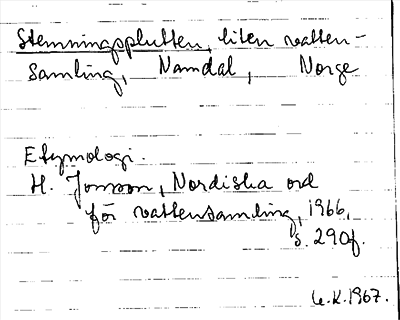 Stemningsplutten, liten vatten-
samling, Namdal, Norge
Etymologi.
H. Jonsson, Nordiska ord
för vattensamling, 1966,
s. 290f.
G.K. 1967.